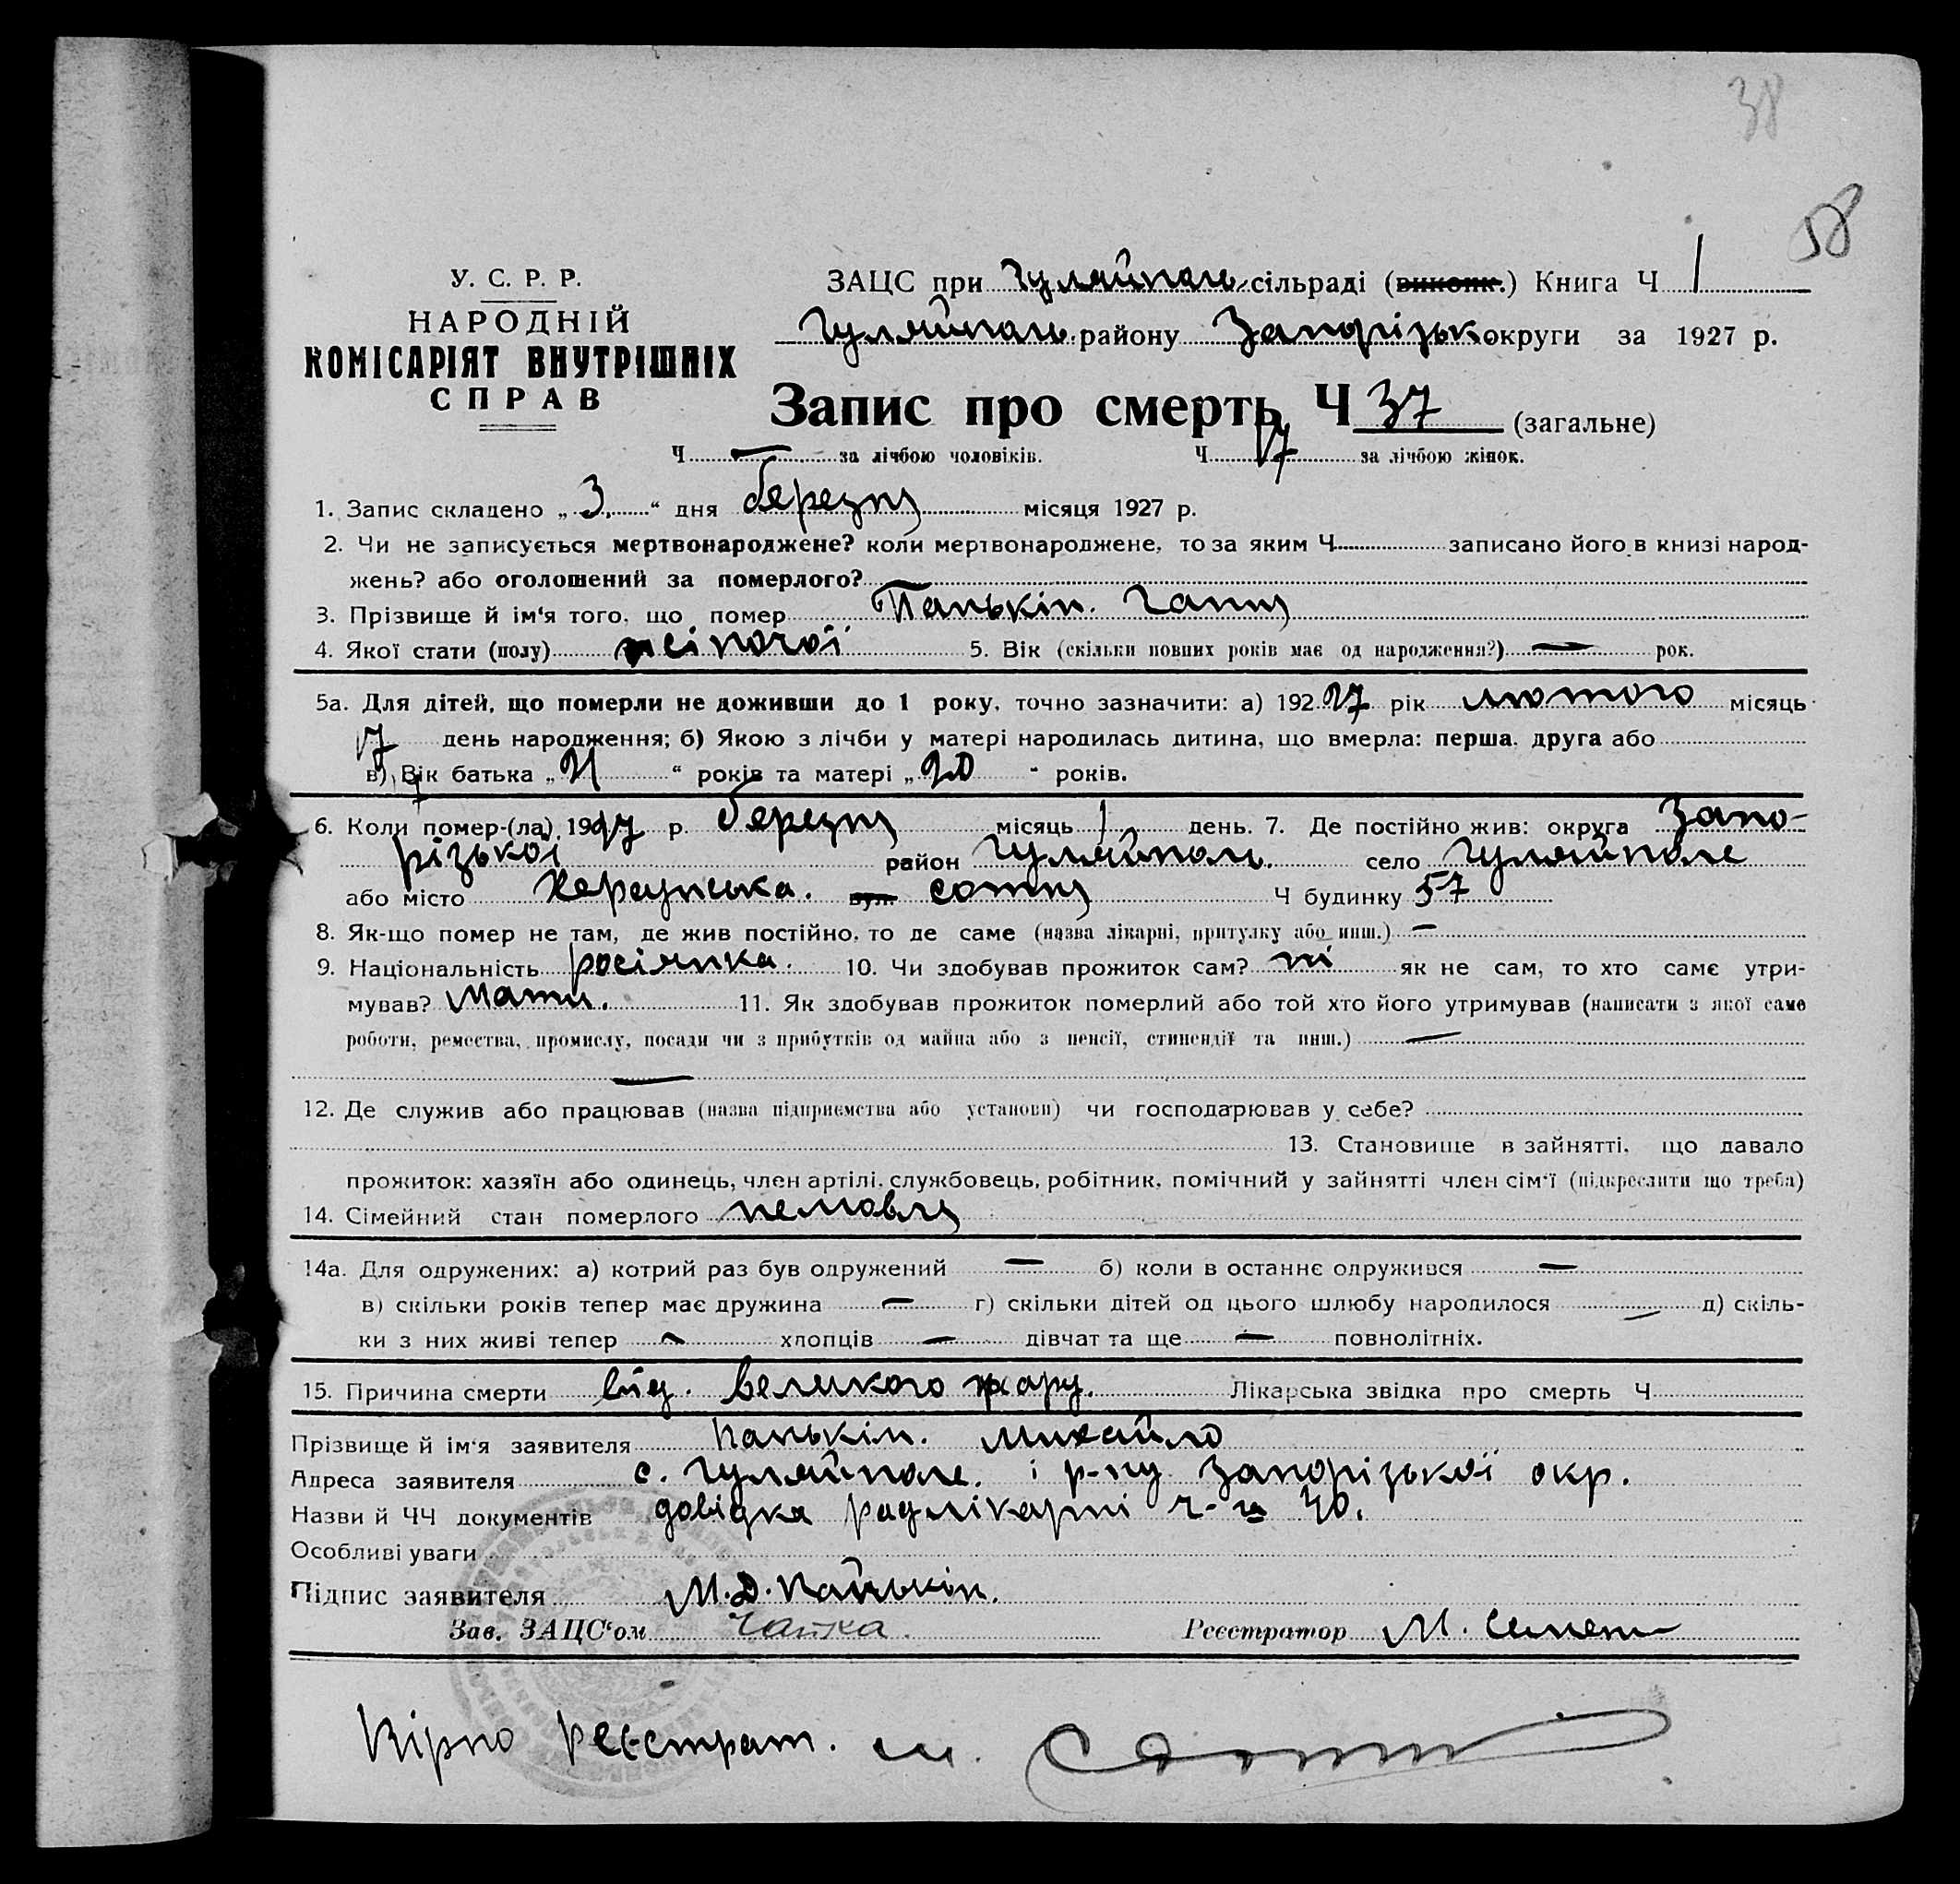 38
58
У. С. Р. Р.
НАРОДНІЙ
КОМІСАРІЯТ ВНУТРІШНІХ
СПРАВ
ЗАЦС при Гуляйпаль. сільраді (виконк.) Книга Ч 1
Гуляйпаль. району Запорізьк округи за 1927 р.
Запис про смерть Ч 37 (загальне)
Ч — за лічбою чоловіків. Ч 17 за лічбою жінок.
1. Запис складено „ 3. “ дня березня місяця 1927 р.
2. Чи не записується мертвонароджене? коли мертвонароджене, то за яким Ч записано його в книзі народ-
жень? або оголошений за померлого?
3. Прізвище й ім‘я того, що помер Панькін. Гання
4. Якої статі (полу) жіночої 5. Вік (скільки повних років має од народження?) — рок.
5а. Для дітей, що померли не доживши до 1 року, точно зазначити: а) 192 27 рік лютого місяць
17 день народження; б) Якою з лічби у матері народилась дитина, що вмерла: перша, друга або
в) Вік батька „ 21 “ років та матері „ 20 “ років.
6. Коли помер-(ла) 1927 р. березня місяць 1 день. 7. Де постійно жив: округа Запо-
різької район Гуляйполь. село Гуляйполе
або місто Херсунська. вул. сотня Ч будинку 57
8. Як-що помер не там, де жив постійно, то де саме (назва лікарні, притулку або инш.) —
9. Національність росіянка. 10. Чи здобував прожиток сам? ні як не сам, то хто саме утри-
мував? Мати. 11. Як здобував прожиток померлий або той хто його утримував (написати з якої саме
роботи, ремества, промислу, посади чи з прибутків од майна або з пенсії, стипендії та инш.) —
—
12. Де служив або працював (назва підприємства або установи) чи господарював у себе?
13. Становище в зайнятті, що давало
прожиток: хазяїн або одинець, член артілі, службовець, робітник, помічний у зайнятті член сім‘ї (підкреслити що треба)
14. Сімейний стан померлого немовля
14а. Для одружених: а) котрий раз був одружений — б) коли в останнє одружився —
в) скільки років тепер має дружина — г) скільки дітей од цього шлюбу народилося — д) скіль-
ки з них живі тепер — хлопців — дівчат та ще — повнолітніх.
15. Причина смерти від. великого жару. Лікарська звідка про смерть Ч
Прізвище й ім‘я заявителя Панькін. Михайло
Адреса заявителя с. Гуляйполе. і р-ну Запорізької окр.
Назви й ЧЧ документів довідка радлікарні 40.
Особливі уваги
Підпис заявителя М.Д. Панькін.
Зав. ЗАЦС‘ом Чайка. Реєстратор М.
Вірно Реєстрат. М.